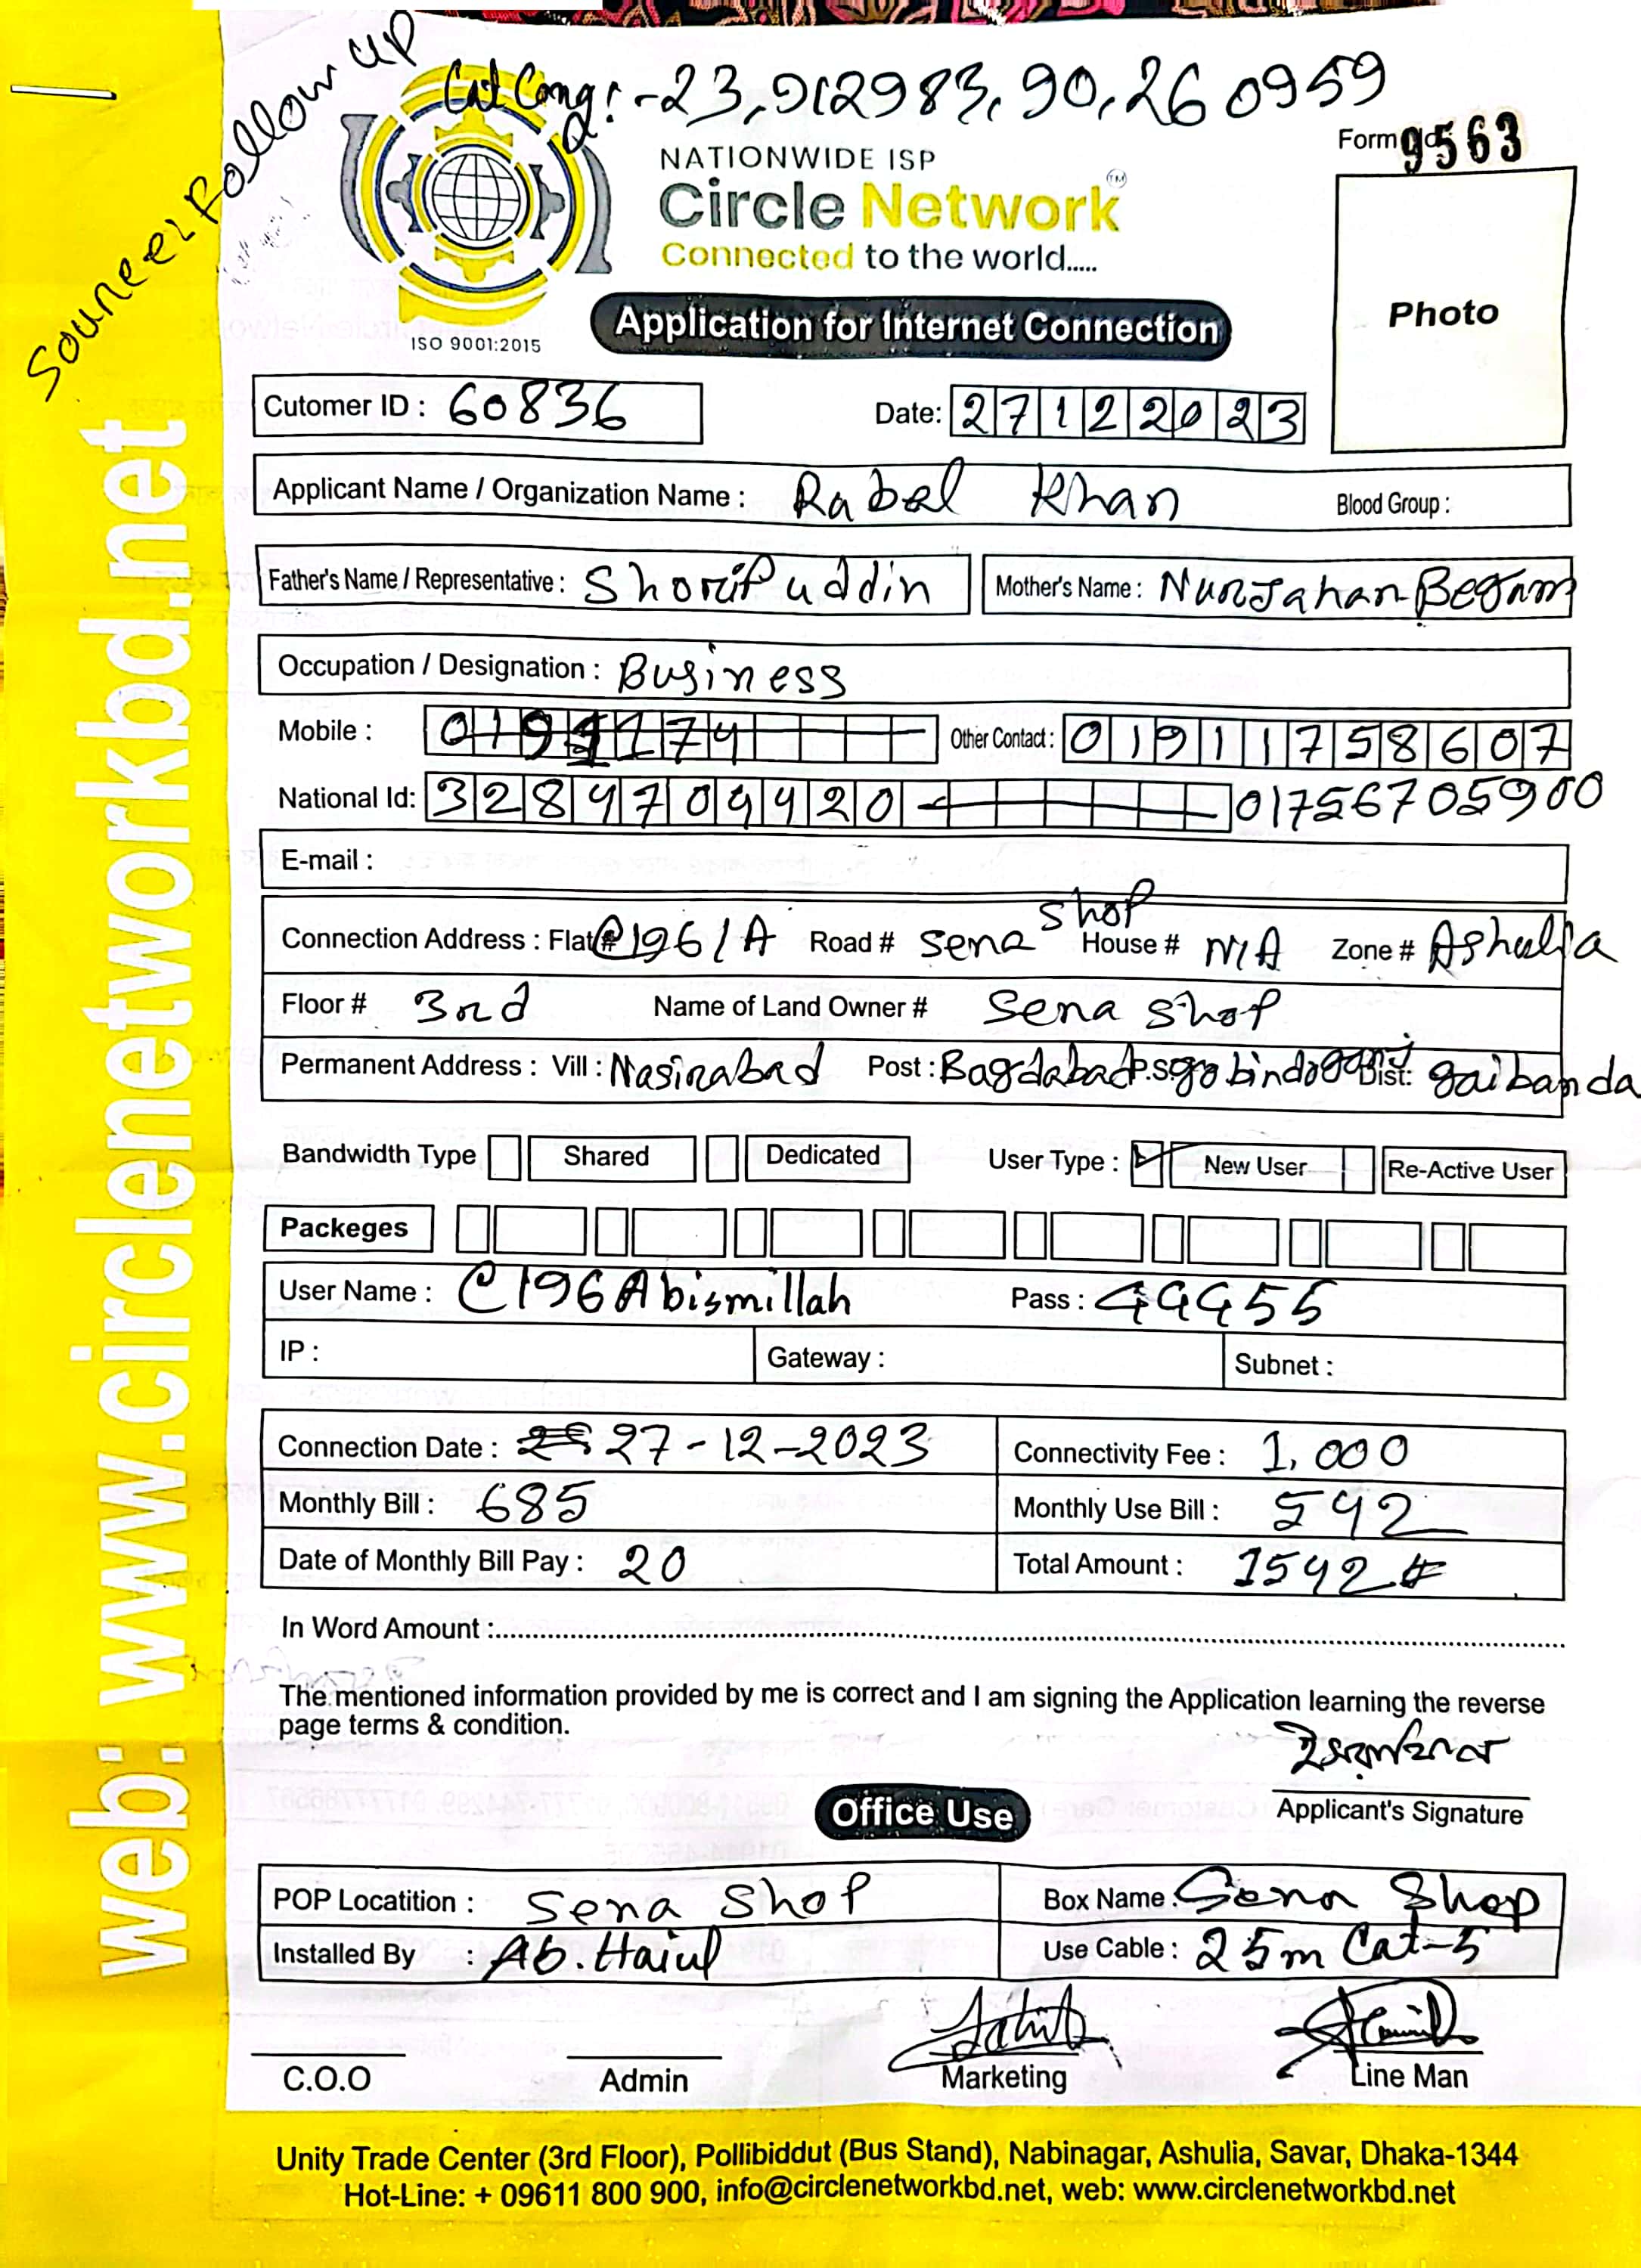 Source: Follow UP
Lat Long: -23.912983, 90.260959
Form No 9563
NATIONWIDE ISP
Circle Network™
Connected to the world.....
ISO 9001:2015
Application for Internet Connection
Photo
Cutomer ID : 60836 Date: 27122023
Applicant Name / Organization Name : Rabel Khan Blood Group :
Father's Name / Representative : Shorif uddin Mother's Name : Nurjahan Begam
Occupation / Designation : Business
Mobile : Other Contact : 01911758607
National Id: 3284704420 01756705900
E-mail :
Connection Address : Flat# C196/A Road # Sena Shop House # N/A Zone # Ashulia
Floor # 3rd Name of Land Owner # Sena Shop
Permanent Address : Vill : Nasirabad Post : Bagdabad P.S: gobindoganj Dist: gaibanda
Bandwidth Type Shared Dedicated User Type : New User Re-Active User
Packeges
User Name : C196Abismillah Pass : 44455
IP : Gateway : Subnet :
Connection Date : 27-12-2023 Connectivity Fee : 1,000
Monthly Bill : 685 Monthly Use Bill : 542
Date of Monthly Bill Pay : 20 Total Amount : 1542
In Word Amount :
The mentioned information provided by me is correct and I am signing the Application learning the reverse
page terms & condition.
Applicant's Signature
Office Use
POP Locatition : Sena Shop Box Name : Sena Shop
Installed By : Ab. Haiul Use Cable : 25m Cat-5
C.O.O Admin Marketing Line Man
web: www.circlenetworkbd.net
Unity Trade Center (3rd Floor), Pollibiddut (Bus Stand), Nabinagar, Ashulia, Savar, Dhaka-1344
Hot-Line: + 09611 800 900, info@circlenetworkbd.net, web: www.circlenetworkbd.net